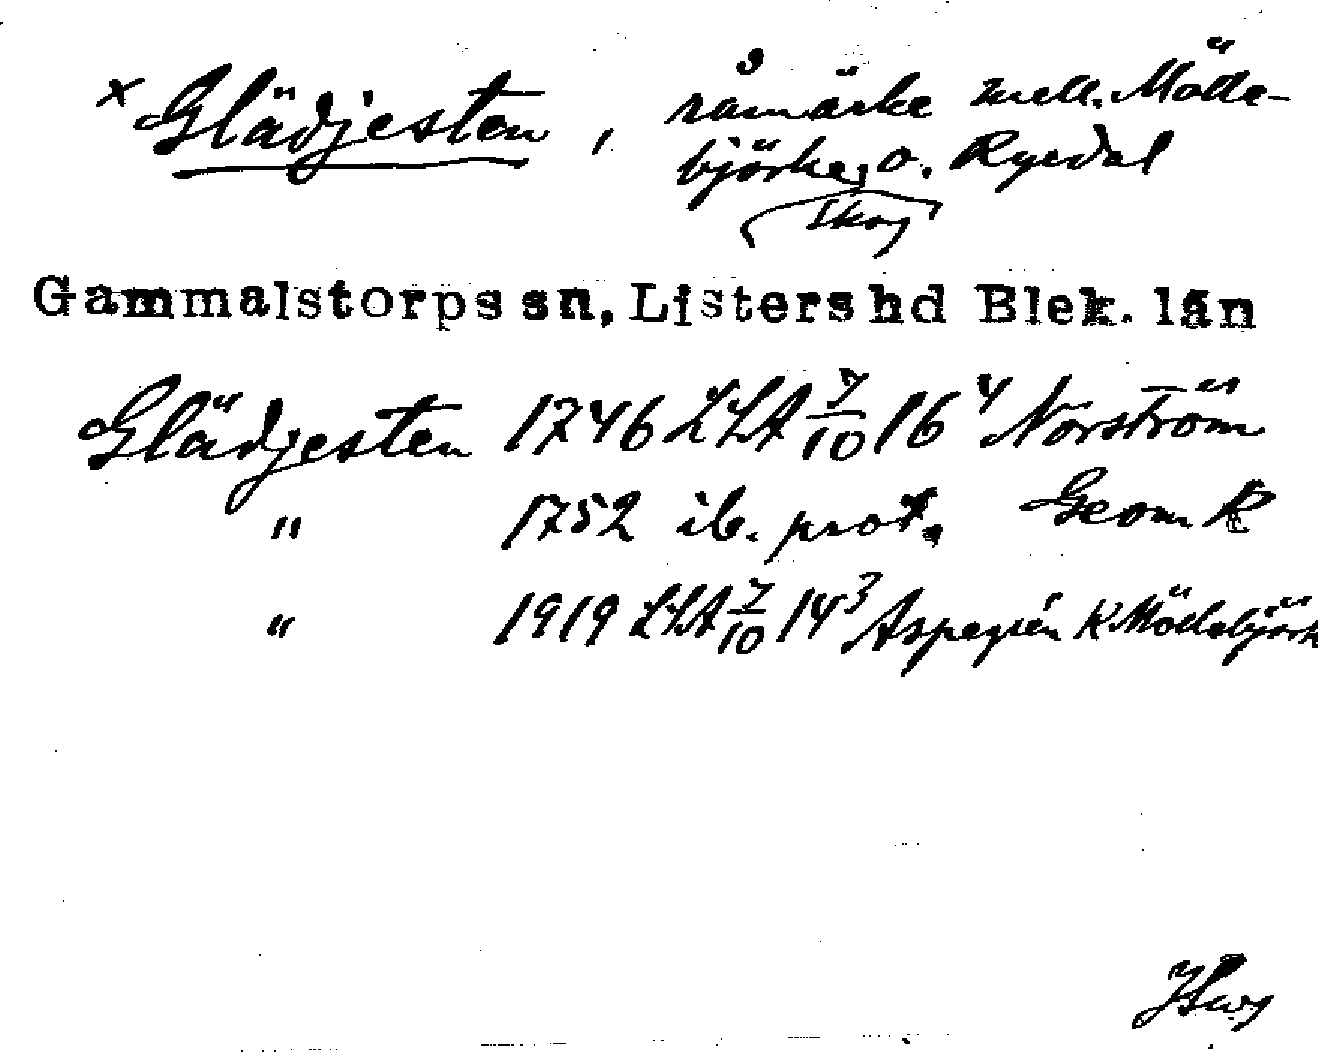 x Glädjesten, råmärke mell. Mölle-
björke o. Ryedal
skog
Gammalstorps sn, Listers hd Blek. län
Glädjesten 1746 LSA 7/10 16⁴ Norström
" 1752 ib. prot. Geom R
" 1919 LSA 7/10 14³ Aspegrén K Möllebjörk